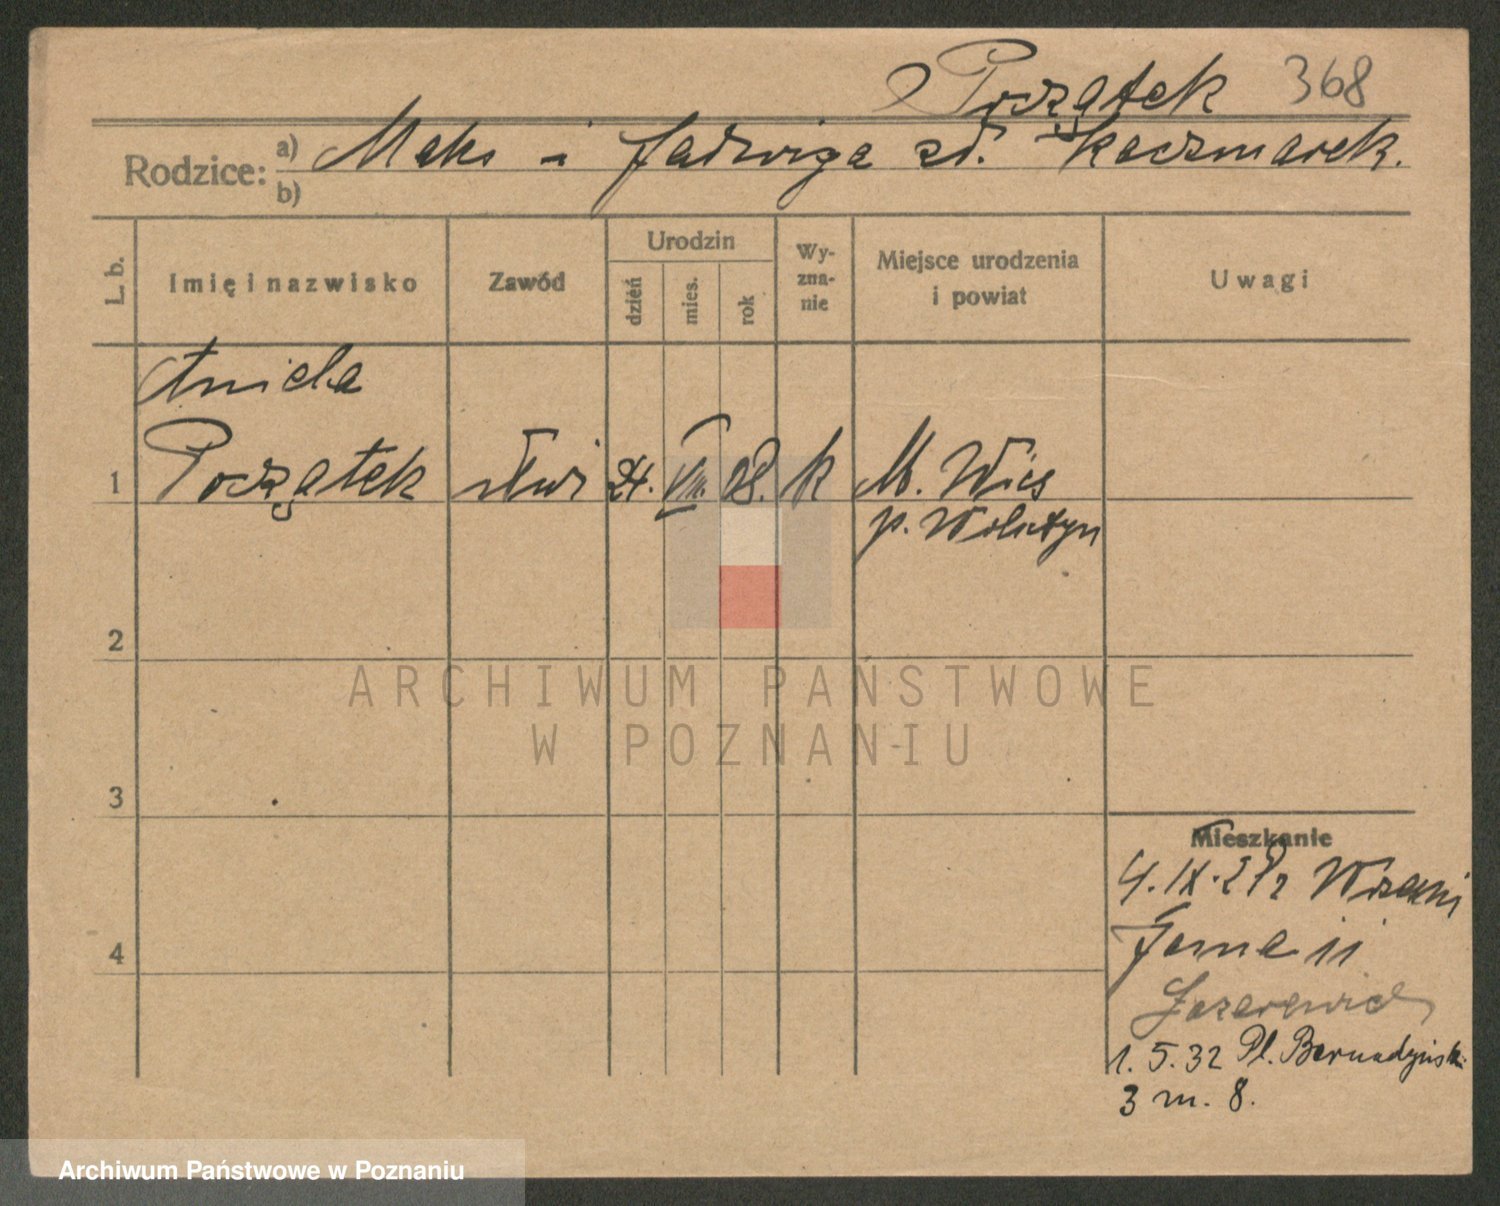 Początek 368
Rodzice: a) Maks i Jadwiga zd. Kaczmarek.
b)
L. b.
Imię i nazwisko
Zawód
Urodzin
dzień
mies.
rok
Wy-
zna-
nie
Miejsce urodzenia
i powiat
Uwagi
Aniela
1 Początek służ 24. VIII. 08. k M. Wieś
p. Wolsztyn
2
ARCHIWUM PAŃSTWOWE
W POZNANIU
3
Mieszkanie
4. IX. Września
4
1. 5. 32 Pl. Bernadyński
3 m. 8.
Archiwum Państwowe w Poznaniu